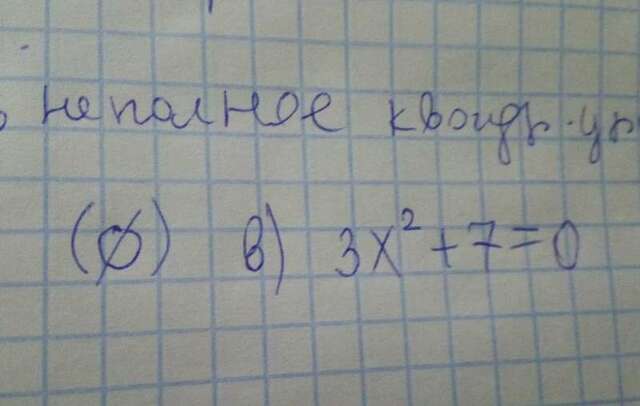 неполное квадр. ур
(∅) в) 3x²+7=0